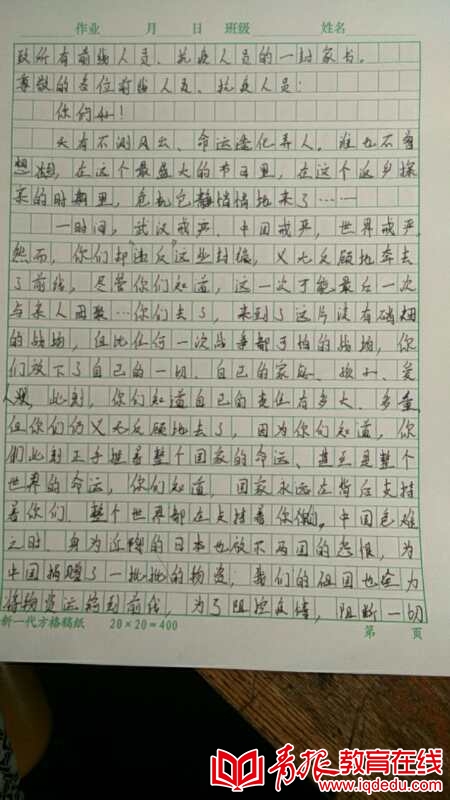 作业 月 日 班级 姓名
致所有前线人员、抗疫人员的一封家书。
尊敬的各位前线人员、抗疫人员：
你们好！
天有不测风云、命运造化弄人，谁也不曾
想想，在这个最盛大的节日里，在这个返乡探
亲的时期里，危机它静悄悄地来了……
一时间，武汉戒严、中国戒严，世界戒严，
然而，你们却"违反"这些封锁，义无反顾地奔去
了前线，尽管你们知道，这一次可能最后一次
与亲人团聚…你们去了，来到了这片没有硝烟
的战场，但比任何一次战争都可怕的战场，你
们放下了自己的一切，自己的家庭、孩子、爱
人，此刻，你们知道自己的责任有多大、多重
但你们仍义无反顾地去了，因为你们知道，你
们此刻正手握着整个国家的命运、甚至是整个
世界的命运，你们知道，国家永远在背后支持
着你们 整个世界都在支持着你们，中国危难
之时，身为近邻的日本也放下两国的怨恨，为
中国捐赠了一批批的物资；我们的祖国也在为
将物资运输到前线，为了阻控疫情，阻断一切
新一代方格稿纸 20×20=400 第 页
青报教育在线
www.iqdedu.com